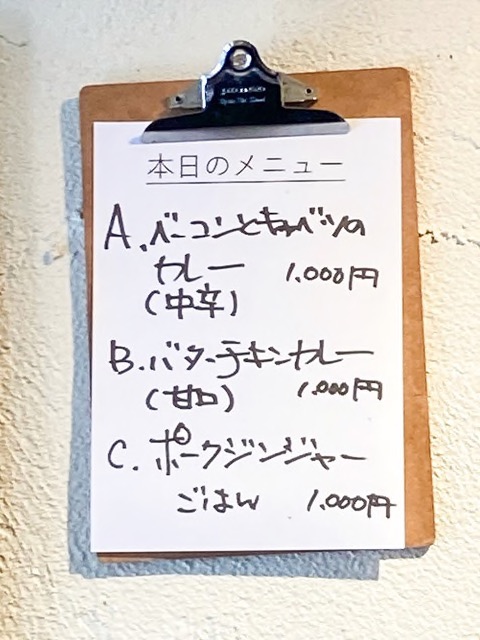 本日のメニュー
A. ベーコンとキャベツの
カレー 1.000円
(中辛)
B. バターチキンカレー
(甘口) 1.000円
C. ポークジンジャー
ごはん 1.000円